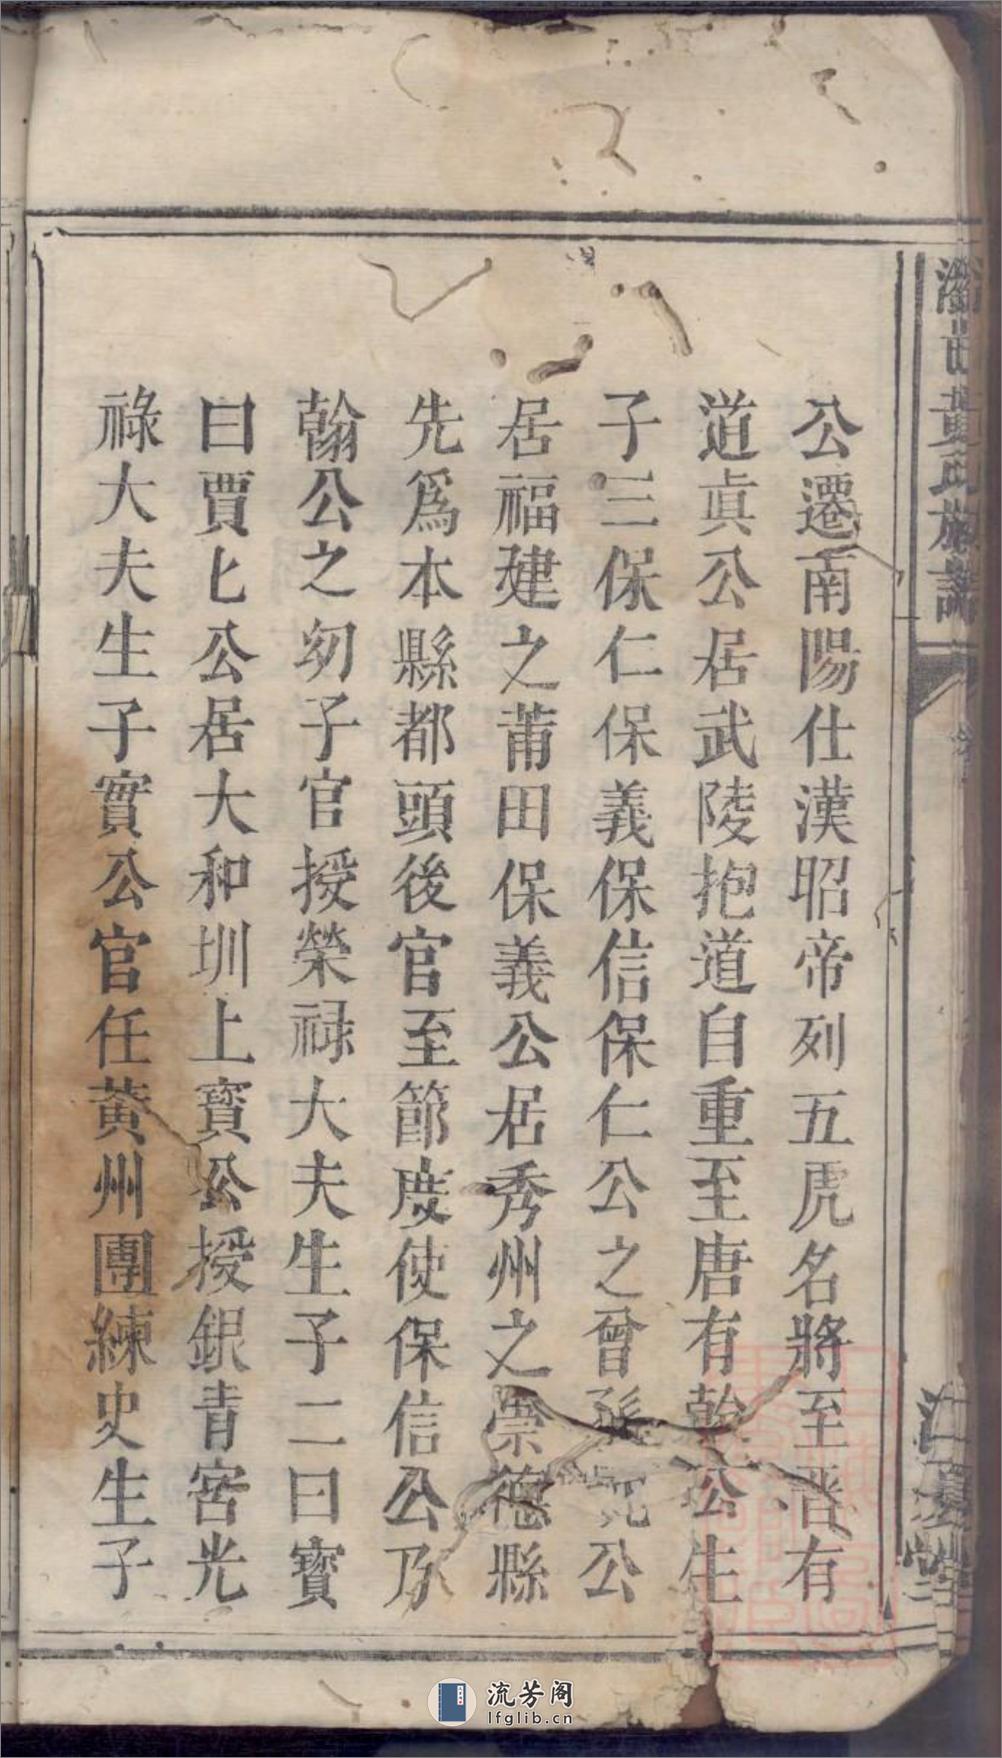 公遷南陽仕漢昭帝列五虎名將至晋有
道眞公居武陵抱道自重至唐有幹公生
子三保仁保義保信保仁公之曾孫公
居福建之莆田保義公居秀州之崇德縣
先爲本縣都頭後官至節度使保信公乃
翰公之㓜子官授榮禄大夫生子二曰寳
曰賈匕公居大和圳上寳公授銀青宻光
祿大夫生子實公官任黄州團練史生子
黃氏族譜
江夏堂
流芳阁
lfglib.cn